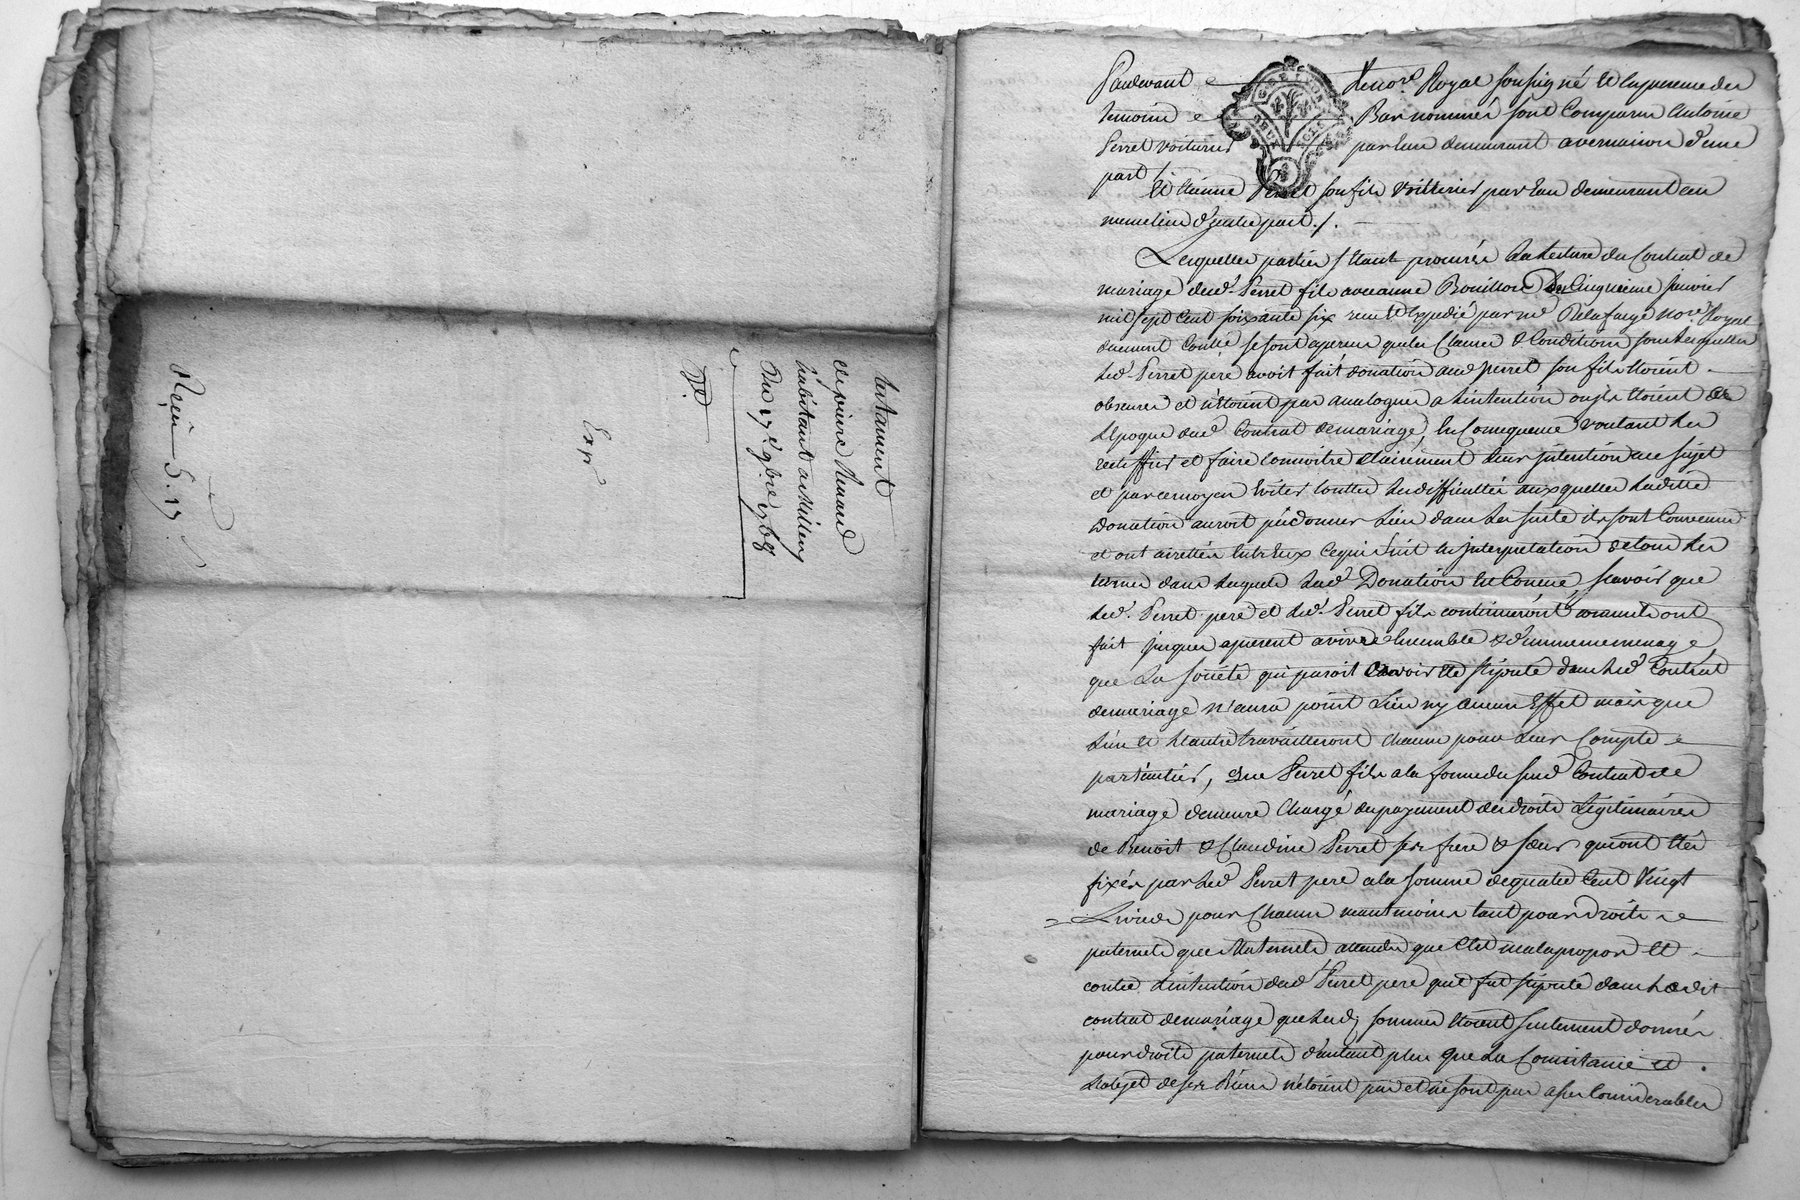 testament
de pierre
habitant a Millery
du 17e 9bre 1768
Exp
Reçu 5. 17
Pardevant le Nore Royal soussigné et en presence des
temoins Bas nommés sont Comparus Antoine
Perret voiturier par Eau demeurant a vernaison d'une
part /.
Et Etienne Perret son fils voiturier par Eau demeurant au
meme lieu d'autre part ./.
Lesquelles parties s'etant procurés La lecture du Contrat de
mariage dud. Perret fils avec anne Bouillon du Cinquieme Janvier
mil sept Cent soixante six recu et Expedié par me Delafarge Nore Royal
duement Controllé se sont aperçus que les Clauses & Conditions sous lesquelles
Led. Perret pere avoit fait donation aud perret son fils Etoient
obscures et n'etoient pas analogues a L'intention ou ils Etoient de
L'Epoque dud Contrat de mariage, En Consequence voulant les
rectiffier et faire Connoitre Clairement leur intention au sujet
et par ce moyen Eviter toutes les difficultés auxquelles Laditte
Donation auroit pu donner Lieu dans la suite ils sont Convenus
et ont arretés Entr'Eux Ce qui suit En jnterpretation de tous les
termes dans lesquels Lad. Donation Est Conçue, scavoir que
Led. Perret pere et Led. Perret fils continueront comme ils ont
fait jusques a present a vivre Ensemble & d'un meme menage
que La societé qui paroit avoir Eté stipulé dans Led Contrat
de mariage n'aura point Lieu ny aucun Effet mais que
L'un et L'autre travailleront chacun pour Leur Compte
particulier, que Perret fils a la forme du susd Contrat de
mariage demeure Chargé du payement des droits Légitimaires
de Benoit & Claudine Perret ses frere & sœur qui ont Etés
fixés par Led Perret pere a la somme de quatre Cent Vingt
Livres pour Chacun neantmoins tant pour droits
paternels que Maternels attendu que C'est mal a propos Et
contre L'intention dud Perret pere que fut stipulé dans Ledit
contrat de mariage que Lesd. sommes Etoient seulement données
pour droits paternels d'autant plus que La Consistance et
L'objet de ses Biens n'etoient pas et ne sont pas assés Considerables